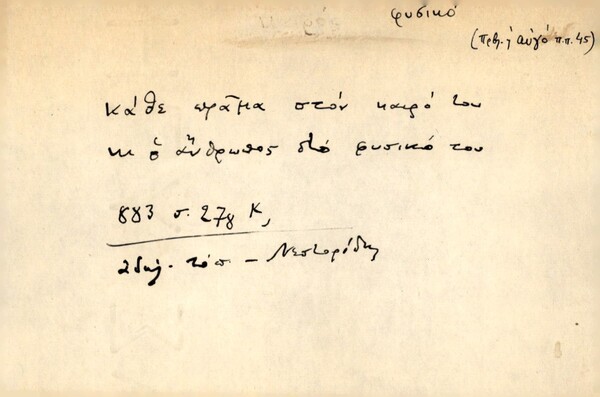 φυσικό
(πρβ. ἡ αὐγό π.π. 45)
κάθε πρᾶμα στόν καιρό του
κι ὁ ἄνθρωπος στό φυσικό του
883 σ. 278 Κ,
ἀδηλ. τόπ. – Νεστορίδης